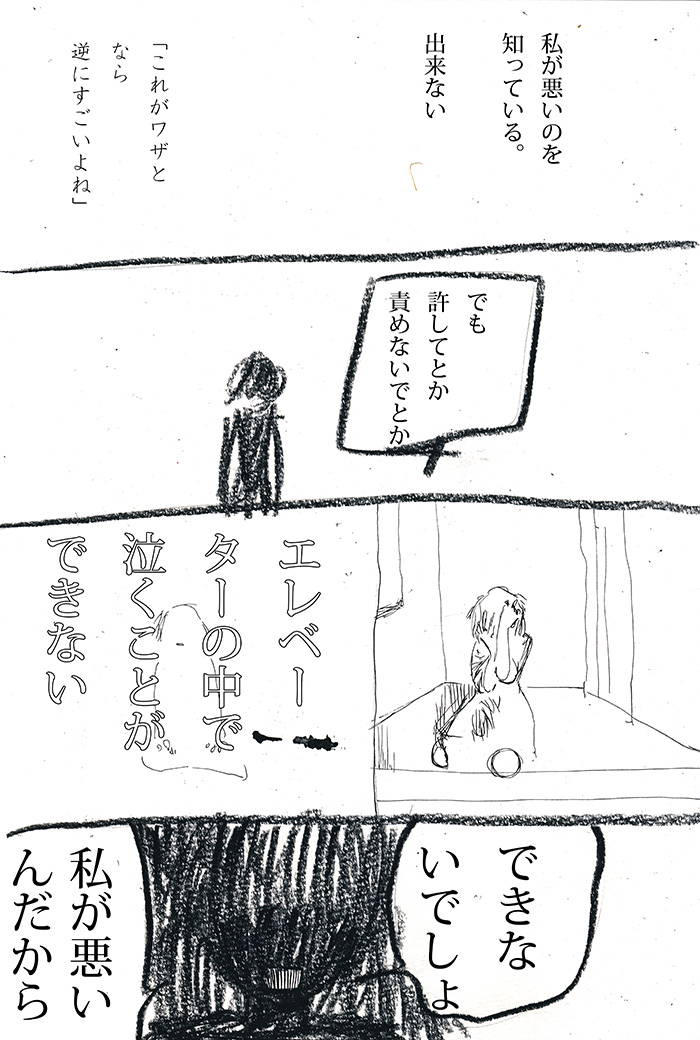 私が悪いのを
知っている。
出来ない
「これがワザと
なら
逆にすごいよね」
でも
許してとか
責めないでとか
エレベー
ターの中で
泣くことが
できない
できな
いでしょ
私が悪い
んだから